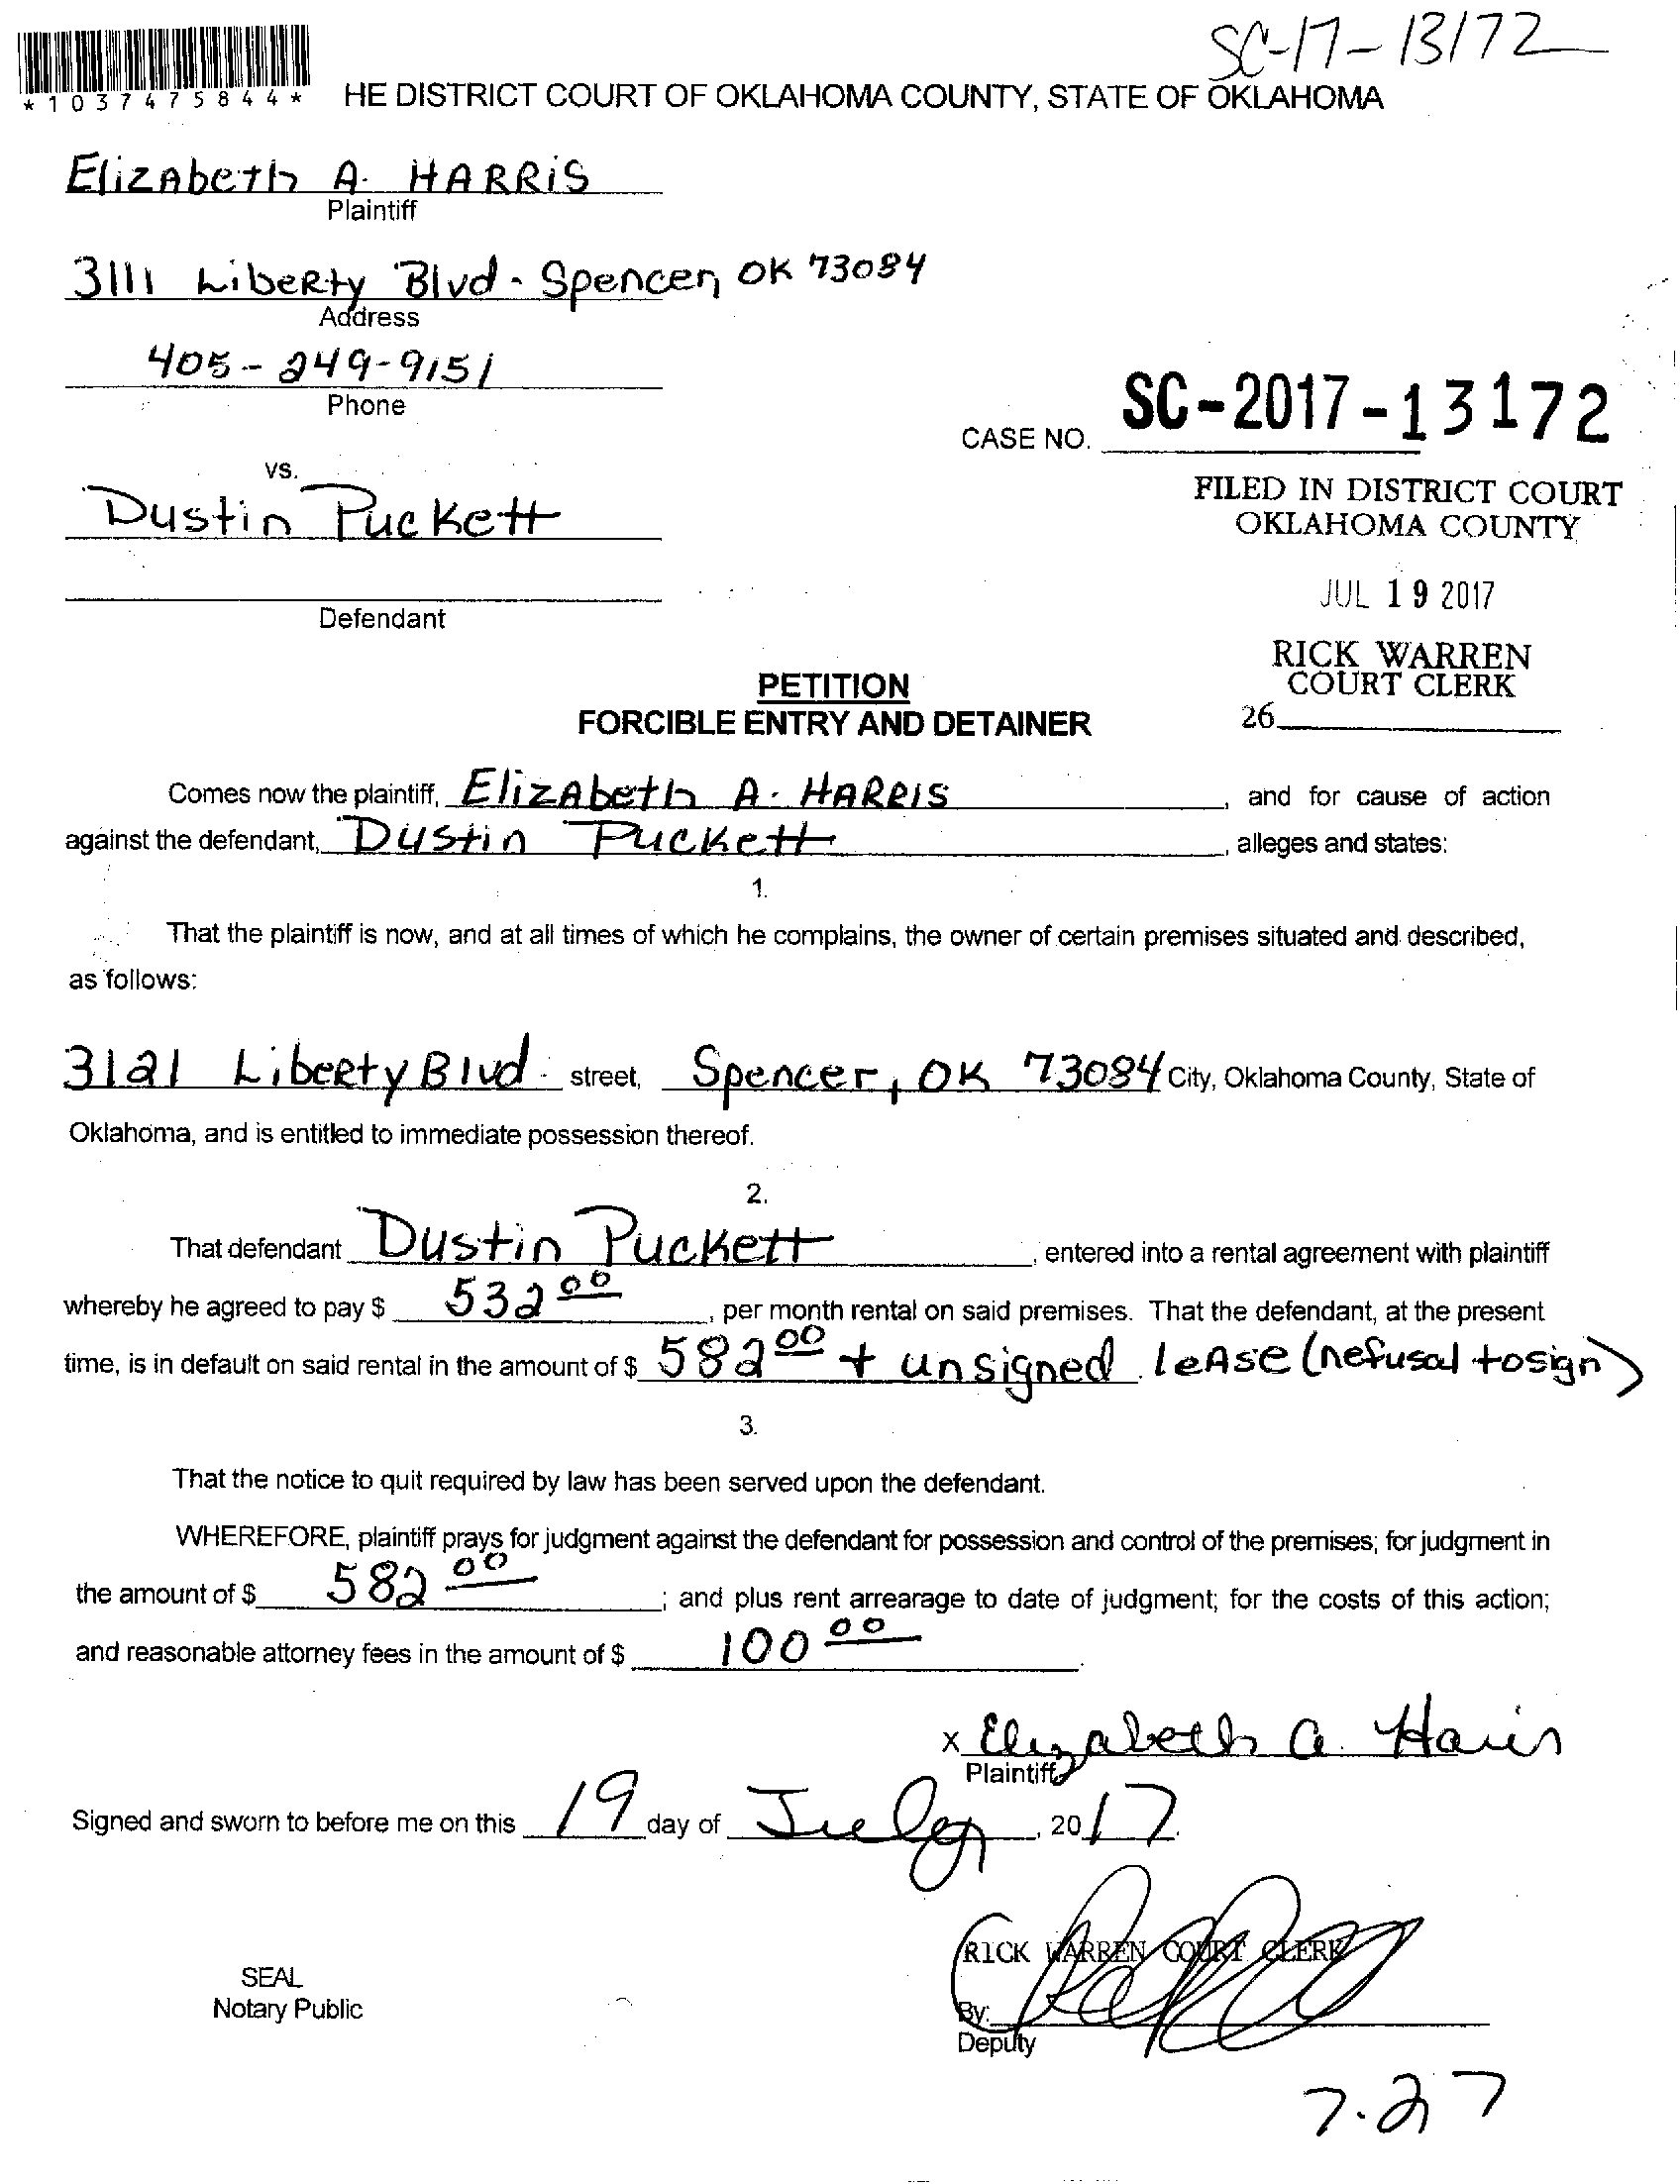 SC-17-13172
*1037475844*
HE DISTRICT COURT OF OKLAHOMA COUNTY, STATE OF OKLAHOMA
Elizabeth A. HARRiS
Plaintiff
3111 Liberty Blvd. Spencer, OK 73084
Address
405-249-9151
Phone
CASE NO. SC-2017-13172
vs.
Dustin Puckett
Defendant
FILED IN DISTRICT COURT
OKLAHOMA COUNTY
JUL 19 2017
RICK WARREN
COURT CLERK
26
PETITION
FORCIBLE ENTRY AND DETAINER
Comes now the plaintiff, Elizabeth A. HARRIS, and for cause of action
against the defendant, Dustin Puckett, alleges and states:
1.
That the plaintiff is now, and at all times of which he complains, the owner of certain premises situated and described,
as follows:
3121 Liberty Blvd. street, Spencer, OK 73084 City, Oklahoma County, State of
Oklahoma, and is entitled to immediate possession thereof.
2.
That defendant Dustin Puckett, entered into a rental agreement with plaintiff
whereby he agreed to pay $ 532 00, per month rental on said premises. That the defendant, at the present
time, is in default on said rental in the amount of $ 582 00 + unsigned lease (refusal to sign)
3.
That the notice to quit required by law has been served upon the defendant.
WHEREFORE, plaintiff prays for judgment against the defendant for possession and control of the premises; for judgment in
the amount of $ 582 00; and plus rent arrearage to date of judgment; for the costs of this action;
and reasonable attorney fees in the amount of $ 100 00.
x Elizabeth A. Harris
Plaintiff
Signed and sworn to before me on this 19 day of July, 2017.
RICK WARREN COURT CLERK
SEAL
Notary Public
By:
Deputy
7.27